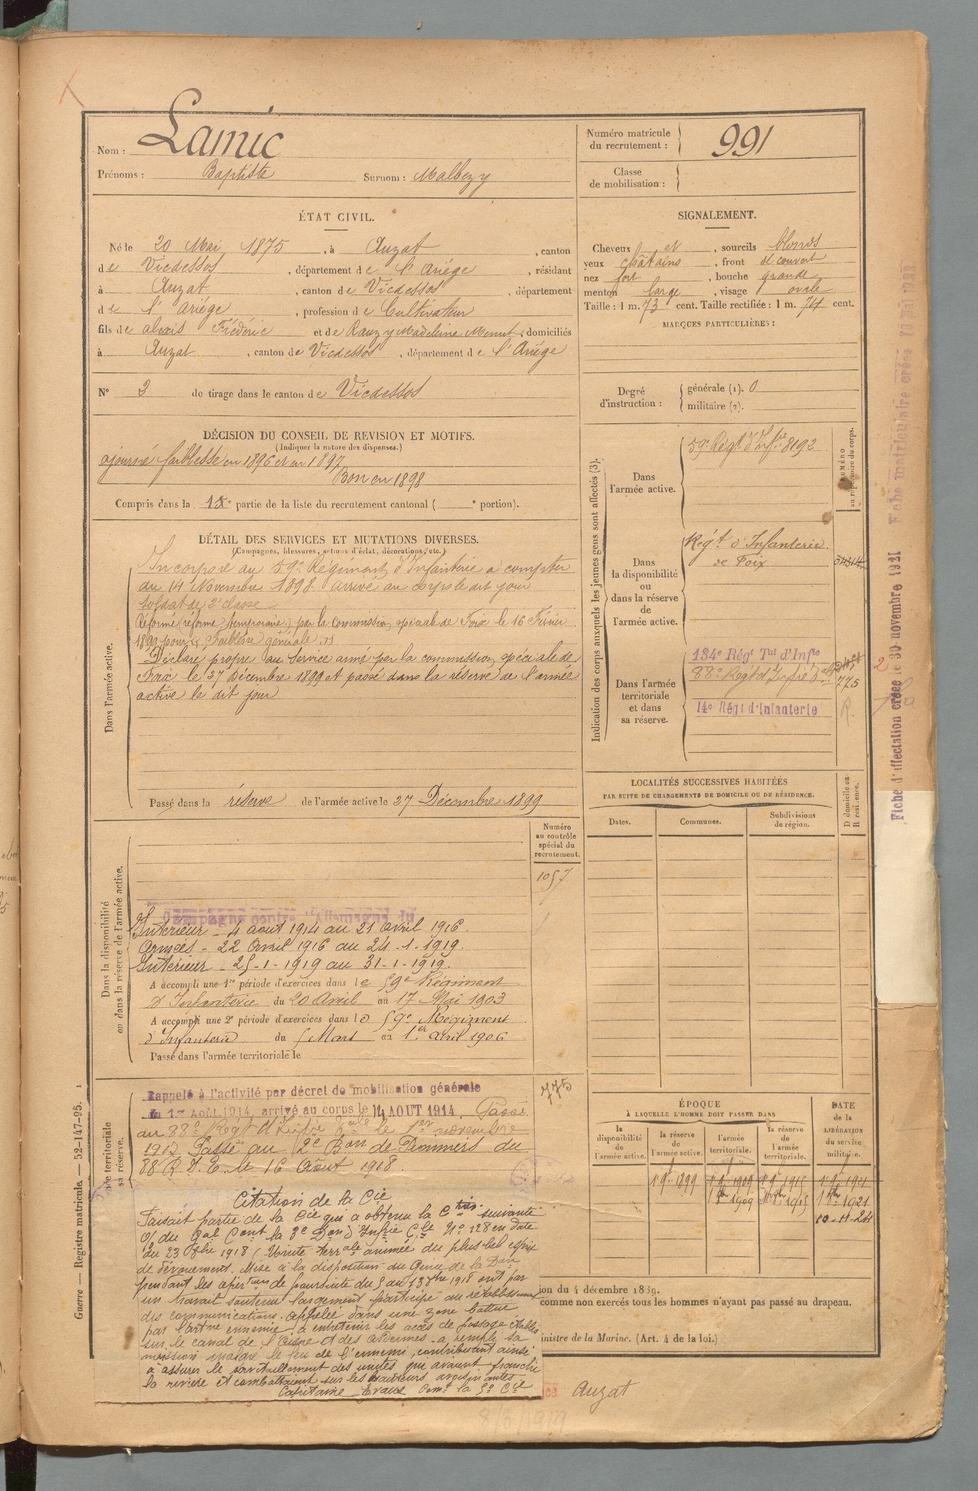 Nom : Lamic
Prénoms : Baptiste Surnom : Malbezy
Numéro matricule du recrutement : 991
Classe de mobilisation :
ÉTAT CIVIL.
Né le 20 Mai 1875, à Auzat, canton
de Vicdessos, département de l'Ariège, résidant
à Auzat, canton de Vicdessos, département
de l'Ariège, profession de Cultivateur
fils de Frédéric et de Rauzy Madeleine, domiciliés
à Auzat, canton de Vicdessos, département de l'Ariège
N° 3 de tirage dans le canton de Vicdessos
SIGNALEMENT.
Cheveux et, sourcils blonds
yeux châtains, front découvert
nez fort, bouche grande
menton large, visage ovale
Taille : 1 m. 73 cent. Taille rectifiée : 1 m. 74 cent.
MARQUES PARTICULIÈRES :
Degré d'instruction : générale (1). 0
militaire (2).
DÉCISION DU CONSEIL DE REVISION ET MOTIFS.
(Indiquer la nature des dispenses.)
ajourné faiblesse en 1896 et en 1897
Bon en 1898
Compris dans la partie de la liste du recrutement cantonal ( e portion).
DÉTAIL DES SERVICES ET MUTATIONS DIVERSES.
(Campagnes, blessures, actions d'éclat, décorations, etc.)
Dans l'armée active.
Incorporé au 59e Régiment d'Infanterie à compter
du 14 Novembre 1898. arrivé au corps le dit jour
soldat de 2e classe
Réformé (réforme temporaire) par la commission spéciale de Foix le 16 Février
1899 pour « Faiblesse générale »
Déclaré propre au service armé par la commission spéciale de
Foix le 27 Décembre 1899 et passé dans la réserve de l'armée
active le dit jour
Passé dans la réserve de l'armée active le 27 Décembre 1899
Indication des corps auxquels les jeunes gens sont affectés (3).
Dans l'armée active.
59e Régt d'Infie 8192
NUMÉRO au répertoire du corps.
Dans la disponibilité ou dans la réserve de l'armée active.
Régt d'Infanterie
de Foix
Dans l'armée territoriale et dans sa réserve.
134e Régt Tal d'Infie
88e Régt d'Infie
775
R.
14e Régt d'Infanterie
LOCALITÉS SUCCESSIVES HABITÉES
PAR SUITE DE CHANGEMENTS DE DOMICILE OU DE RÉSIDENCE.
Dates.
Communes.
Subdivisions de région.
D domicile ou R résidence.
Dans la disponibilité ou dans la réserve de l'armée active.
Numéro au contrôle spécial du recrutement.
1057
Campagne contre l'Allemagne du
Intérieur - 4 août 1914 au 21 avril 1916.
Armées - 22 Avril 1916 au 24-1-1919.
Intérieur - 25-1-1919 au 31-1-1919.
A accompli une 1re période d'exercices dans le 59e Régiment
d'Infanterie du 20 Avril au 17 Mai 1903
A accompli une 2e période d'exercices dans le 59e Régiment
d'Infanterie du 5 Mars au 1er avril 1906
Passé dans l'armée territoriale le
Rappelé à l'activité par décret de mobilisation générale
du 1er Août 1914, arrivé au corps le 4 AOUT 1914. Passé
au 88e Régt d'Infie le 1er novembre
Passé au 2e Bon de Pionniers du
88 R.I.T. le 16 Août 1918.
775
Citation de la Cie
Faisait partie de la Cie qui a obtenu la Cton suivante
pendant les opértions de poursuite du
un travail soutenu largement participé au rétablissement
des communications. Appelée dans une zone battue
par l'artrie ennemie à entretenir les accès de passage établis
sur le canal de l'Aisne et des Ardennes. a rempli sa
mission malgré le feu de l'ennemi, contribuant ainsi
à assurer le ravitaillement des unités qui avaient franchi
la rivière et combattaient sur les hauteurs avoisinantes
Capitaine
ÉPOQUE
À LAQUELLE L'HOMME DOIT PASSER DANS
la disponibilité de l'armée active.
la réserve de l'armée active.
l'armée territoriale.
la réserve de l'armée territoriale.
DATE de la LIBÉRATION du service militaire.
10-11-24
ion du 4 décembre 1889.
comme non exercés tous les hommes n'ayant pas passé au drapeau.
inistre de la Marine. (Art. 4 de la loi.)
Auzat
8/5/1919
Guerre — Registre matricule. — 32-147-95.
Fiche d'affectation créée le 30 novembre 1921
Fiche matriculaire créée